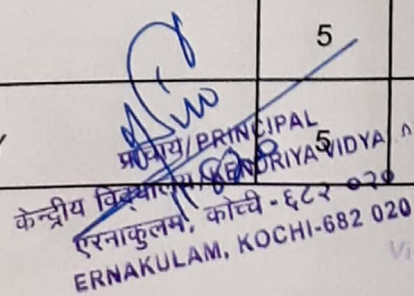 5
5
प्राचार्य/PRINCIPAL
केन्द्रीय विद्यालय/KENDRIYA VIDYA
एरनाकुलम, कोच्ची - ६८२ ०२०
ERNAKULAM, KOCHI-682 020